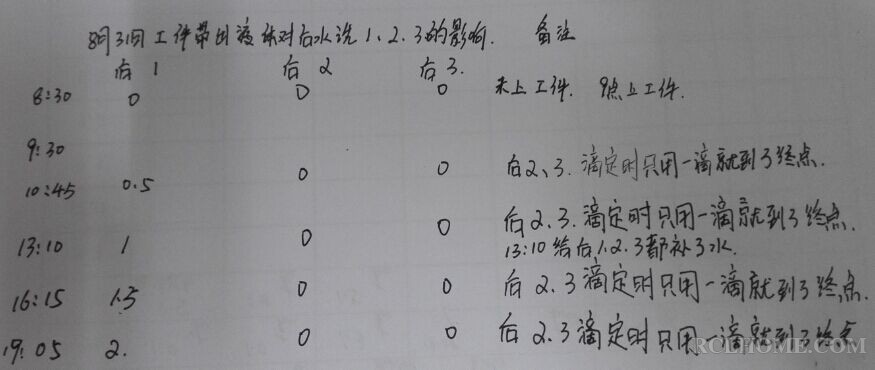 8月31日工件带出液体对后水洗1、2、3的影响. 备注
后1 后2 后3.
8:30 0 0 0 未上工件. 9点上工件.
9:30
10:45 0.5 0 0 后2、3.滴定时只用一滴就到了终点.
13:10 1 0 0 后2.3.滴定时只用一滴就到了终点.
13:10给后1.2.3都补了水.
16:15 1.5 0 0 后2.3滴定时只用一滴就到了终点.
19:05 2. 0 0 后2.3滴定时只用一滴就到了终点
RCLHOME.COM